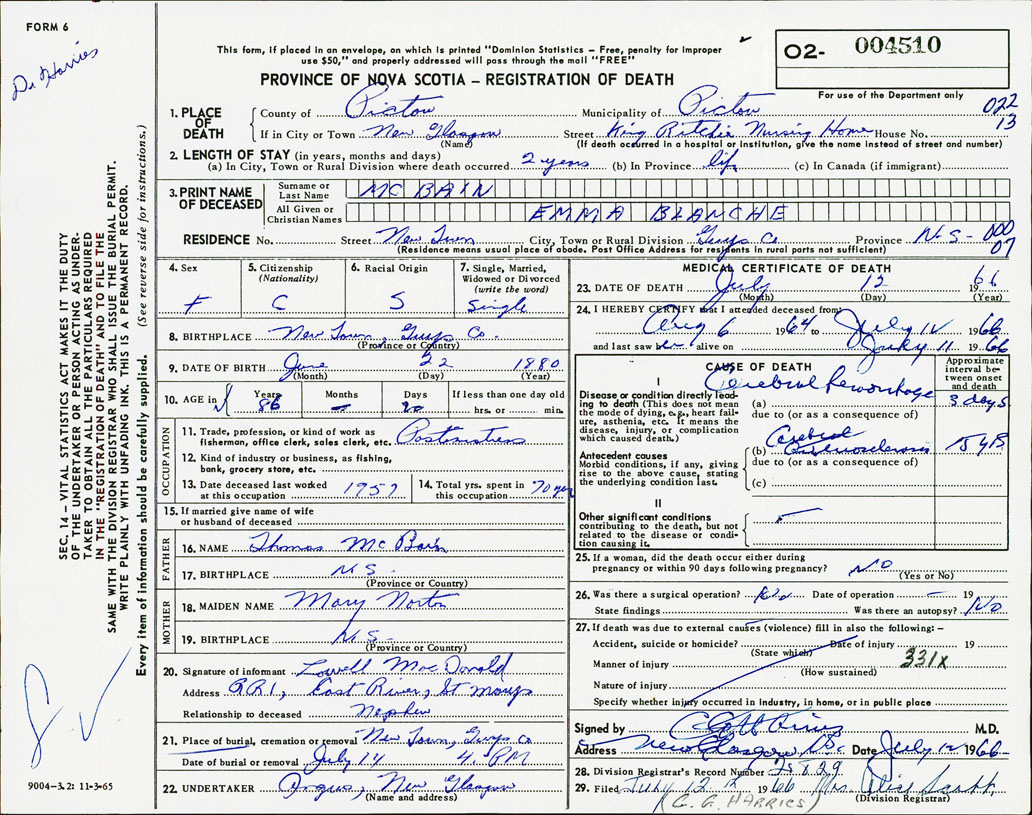 FORM 6
Dr Harries
This form, if placed in an envelope, on which is printed "Dominion Statistics – Free, penalty for improper
use $50," and properly addressed will pass through the mail "FREE"
PROVINCE OF NOVA SCOTIA – REGISTRATION OF DEATH
O2- 004510
For use of the Department only
022
13
1. PLACE OF DEATH
County of Pictou Municipality of Pictou
If in City or Town New Glasgow Street King Ritchie Nursing Home House No.
(Name) (If death occurred in a hospital or institution, give the name instead of street and number)
2. LENGTH OF STAY (in years, months and days)
(a) In City, Town or Rural Division where death occurred 2 years (b) In Province life (c) In Canada (if immigrant)
3. PRINT NAME OF DECEASED
Surname or Last Name MC BAIN
All Given or Christian Names EMMA BLANCHE
RESIDENCE No. Street New Town City, Town or Rural Division Guys Co Province N.S - 000
07
(Residence means usual place of abode. Post Office Address for residents in rural parts not sufficient)
4. Sex F
5. Citizenship (Nationality) C
6. Racial Origin S
7. Single, Married, Widowed or Divorced (write the word) Single
8. BIRTHPLACE New Town, Guys Co.
(Province or Country)
9. DATE OF BIRTH June 22 1880
(Month) (Day) (Year)
10. AGE in Years 86 Months – Days 20 If less than one day old
hrs. or min.
OCCUPATION
11. Trade, profession, or kind of work as
fisherman, office clerk, sales clerk, etc. Postmistress
12. Kind of industry or business, as fishing,
bank, grocery store, etc.
13. Date deceased last worked at this occupation 1957
14. Total yrs. spent in this occupation 70 yrs
15. If married give name of wife
or husband of deceased
FATHER
16. NAME Thomas McBain
17. BIRTHPLACE N.S.
(Province or Country)
MOTHER
18. MAIDEN NAME Mary Norton
19. BIRTHPLACE N.S.
(Province or Country)
20. Signature of informant Lowell MacDonald
Address R.R.1, East River, St Marys
Relationship to deceased Nephew
21. Place of burial, cremation or removal New Town, Guys Co
Date of burial or removal July 14 4. PM
22. UNDERTAKER New Glasgow
(Name and address)
MEDICAL CERTIFICATE OF DEATH
23. DATE OF DEATH July 12 1966
(Month) (Day) (Year)
24. I HEREBY CERTIFY that I attended deceased from
Aug 6 1964 to July 12 1966
and last saw her alive on July 11 1966
CAUSE OF DEATH
Approximate interval between onset and death
I
Disease or condition directly leading to death (This does not mean the mode of dying, e.g., heart failure, asthenia, etc. It means the disease, injury, or complication which caused death.)
(a) Cerebral hemorrhage 3 days
due to (or as a consequence of)
Antecedent causes
Morbid conditions, if any, giving rise to the above cause, stating the underlying condition last.
(b) Cerebral Arteriosclerosis 5 yrs
due to (or as a consequence of)
(c)
II
Other significant conditions
contributing to the death, but not related to the disease or condition causing it.
25. If a woman, did the death occur either during
pregnancy or within 90 days following pregnancy? NO
(Yes or No)
26. Was there a surgical operation? No Date of operation – 19
State findings Was there an autopsy? NO
27. If death was due to external causes (violence) fill in also the following: –
Accident, suicide or homicide? Date of injury 19
(State which)
Manner of injury 331X
(How sustained)
Nature of injury
Specify whether injury occurred in industry, in home, or in public place
Signed by M.D.
Address New Glasgow N.S. Date July 12 1966
28. Division Registrar's Record Number
29. Filed July 12 1966 Mrs. Alice Scott
(C. G. HARRIES) (Division Registrar)
SEC. 14 – VITAL STATISTICS ACT MAKES IT THE DUTY
OF THE UNDERTAKER OR PERSON ACTING AS UNDER-
TAKER TO OBTAIN ALL THE PARTICULARS REQUIRED
IN THE "REGISTRATION OF DEATH" AND TO FILE THE
SAME WITH THE DIVISION REGISTRAR WHO SHALL ISSUE THE BURIAL PERMIT.
WRITE PLAINLY WITH UNFADING INK. THIS IS A PERMANENT RECORD.
Every item of information should be carefully supplied. (See reverse side for instructions.)
9004-3.2: 11-3-65